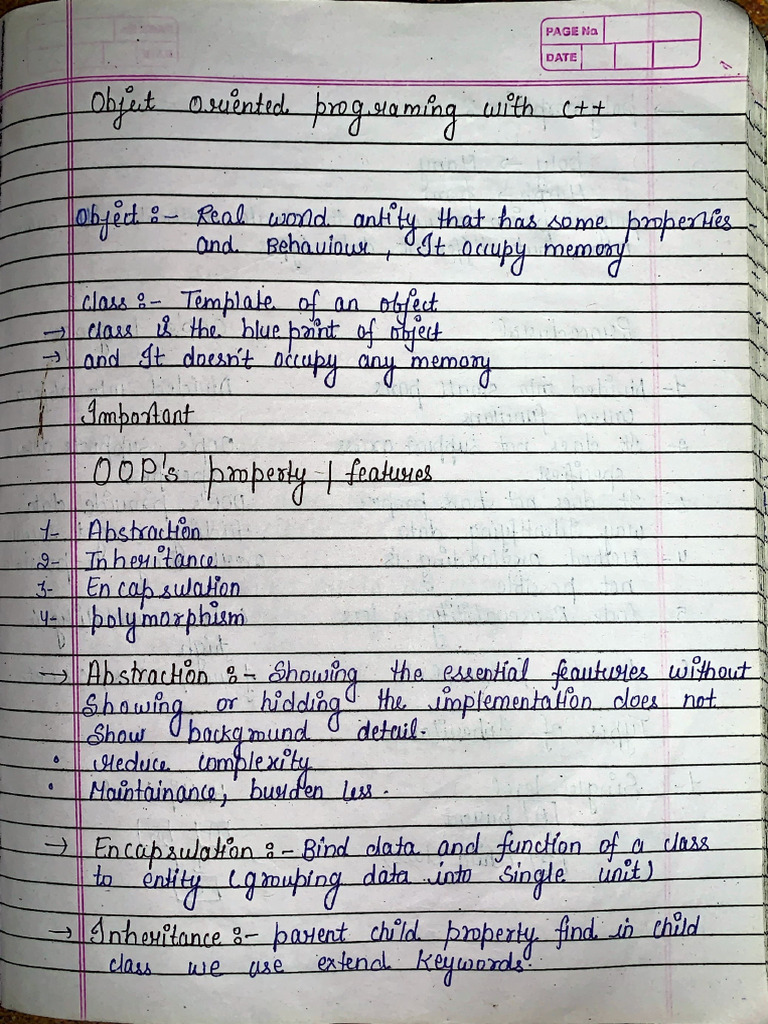 PAGE No
DATE
Object oriented programing with c++
Object :- Real world antity that has some properties
and Behaviour, It occupy memory
class :- Template of an object
→ class is the blue print of object
→ and It doesn't occupy any memory
Important
OOP's property / features
1- Abstraction
2- Inheritance
3- Encapsulation
4- polymorphism
→ Abstraction :- Showing the essential feautures without
Showing or hidding the implementation does not
Show background detail.
• reduce complexity
• Maintainance, burden less.
→ Encapsulation :- Bind data and function of a class
to entity (grouping data into single unit)
→ Inheritance :- parent child property find in child
class we use extend keywords.